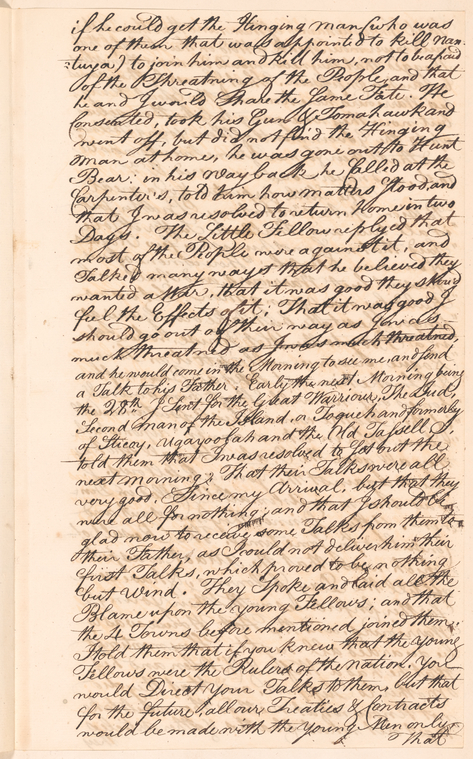 if he could get the Hinging man (who was
one of them that was appointed to kill Nan-
:tuya) to join him and kill him, not to be afraid
of the Threatning of the People, and that
he and I would Share the Same Fate. He
Consented, took his Gun & Tomahawk and
went off, but did not find the Hinging
man at home, he was gone out to Hunt
Bear; in his way back he called at the
Carpenter's, told him how matters Stood, and
that I was resolved to return Home in two
Days. The Little Fellow replyed that
most of the People were against it, and
Talked many ways that he believed they
wanted a War, that it was good they should
feel the Effects of it; That it was good I
should go out of their way as I was
much threatned,
and he would come in the Morning to see me, and send
a Talk to his Father. Early the next Morning being
the 28th I Sent for the Great Warriour, The Jud,
Second man of the Island, or Toqueh and formerly
of Sticoy, and the Old Tassell I
told them that I was resolved to Set out the
next morning; That their Talks were all
very good, Since my Arrival, but that they
were all for nothing; and that I should be
glad now to receive some Talks from them to
their Father, as I could not deliver him their
first Talks, which proved to be nothing
but Wind. They Spoke and laid all the
Blame upon the young Fellows; and that
the 4 Towns before mentioned joined them.
I told them that if you knew that the young
Fellows were the Rulers of the nation, You
would Direct your Talks to them, but that
for the future, all our Treaties & Contracts
would be made with the young Men only
That